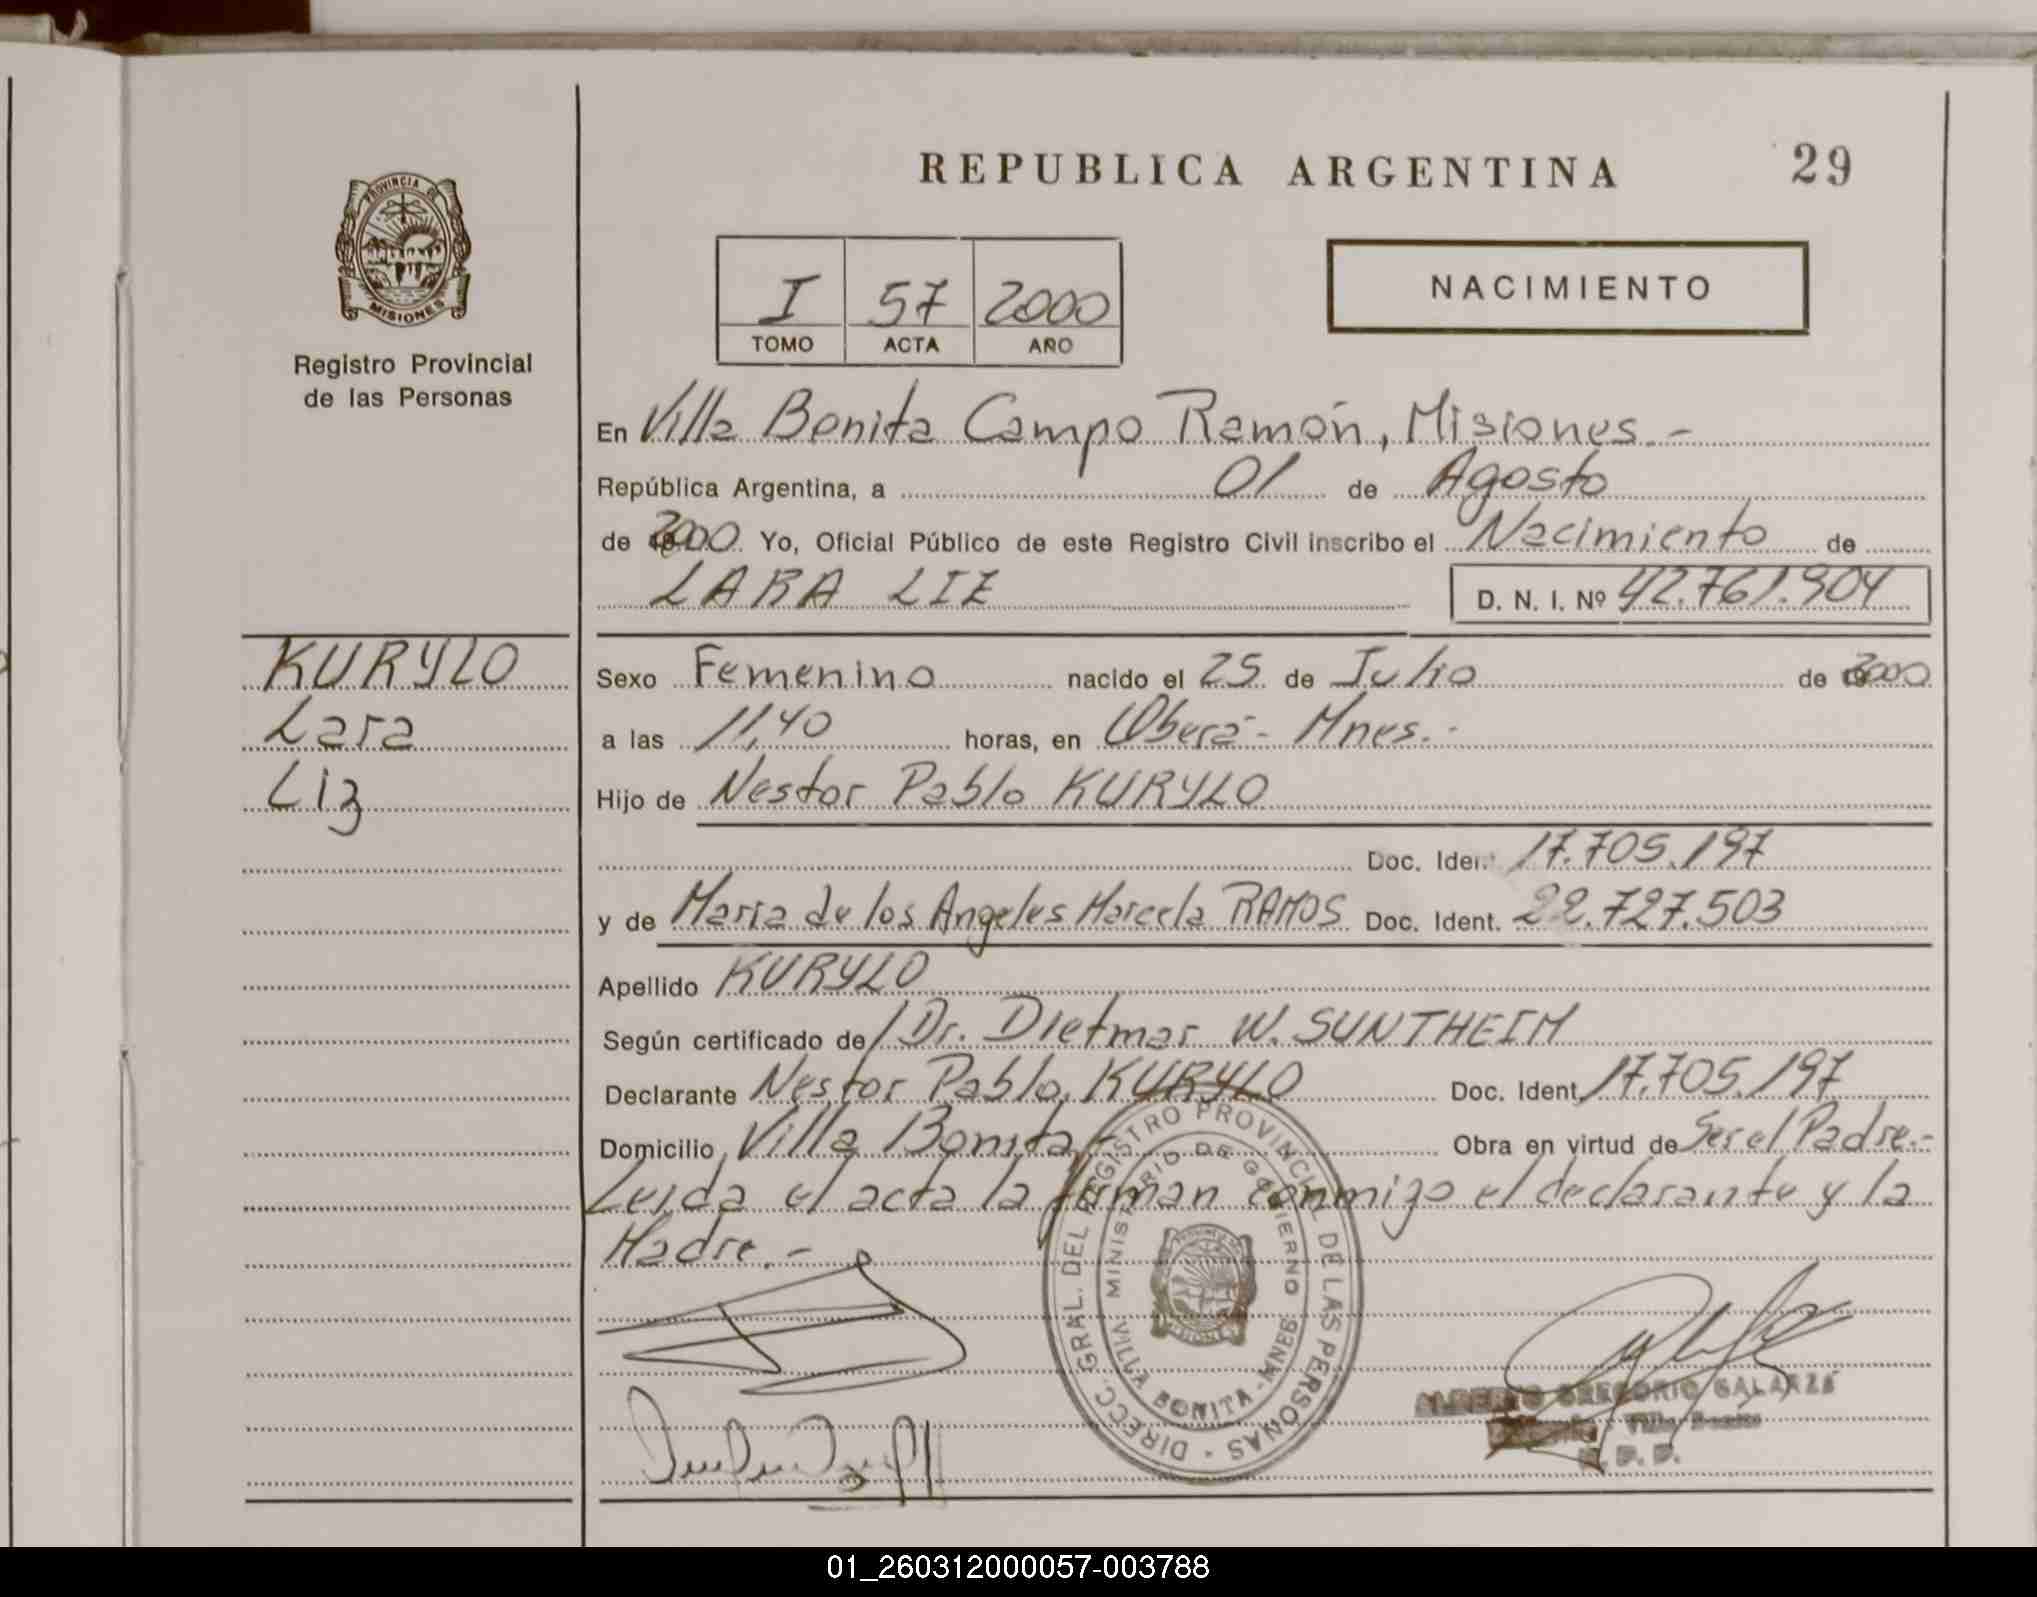 REPUBLICA ARGENTINA
29
PROVINCIA DE
MISIONES
Registro Provincial
de las Personas
I 57 2000
TOMO ACTA AÑO
NACIMIENTO
En Villa Bonita Campo Ramón, Misiones.-
República Argentina, a 01 de Agosto
de 2000 Yo, Oficial Público de este Registro Civil inscribo el Nacimiento de
LARA LIZ D. N. I. Nº 42.761.904
KURYLO
Lara
Liz
Sexo Femenino nacido el 25 de Julio de 2000
a las 11,40 horas, en Oberá - Mnes.-
Hijo de Nestor Pablo KURYLO
Doc. Ident. 17.705.197
y de Maria de los Angeles Marcela RAMOS Doc. Ident. 22.727.503
Apellido KURYLO
Según certificado de Dr. Dietmar W. SUNTHEIM
Declarante Nestor Pablo KURYLO Doc. Ident. 17.705.197
Domicilio Villa Bonita - Obra en virtud de Ser el Padre.-
Leida el acta la firman conmigo el declarante y la
Madre.-
DIRECC. GRAL. DEL REGISTRO PROVINCIAL DE LAS PERSONAS -
MINISTERIO DE GOBIERNO
VILLA BONITA - MNES
ALBERTO GREGORIO GALARZA
Villa Bonita
01_260312000057-003788